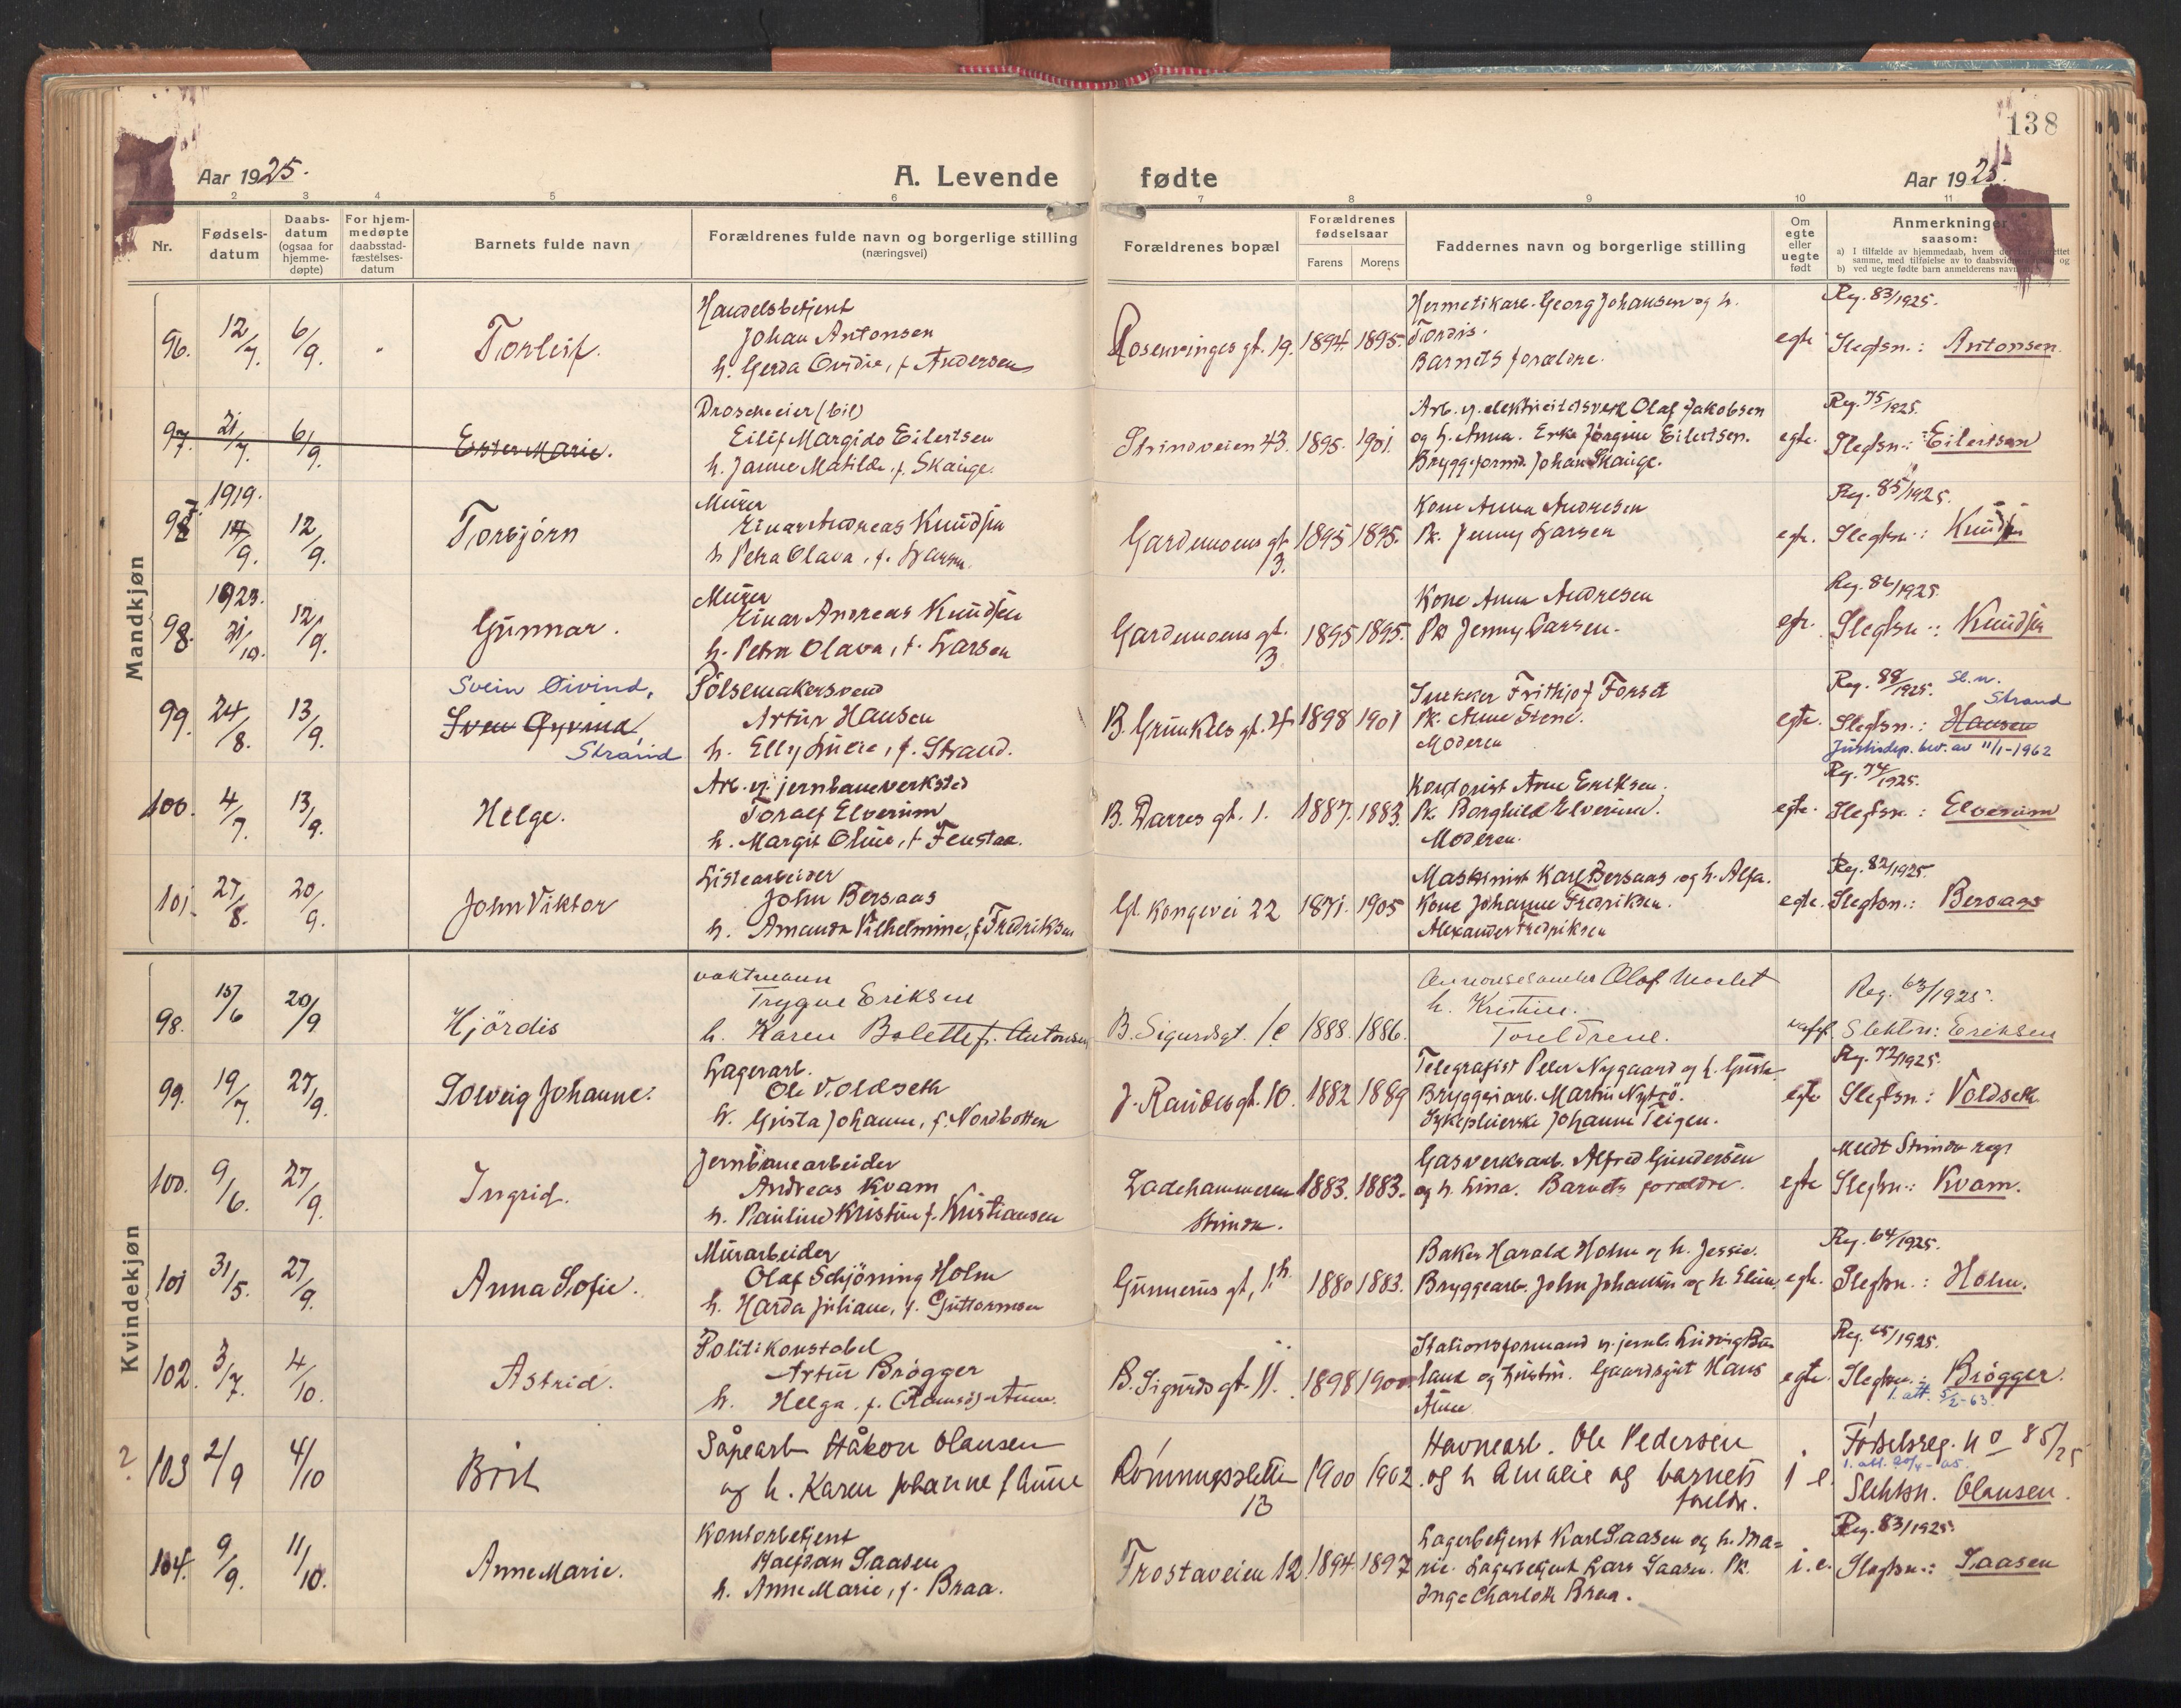 138
Aar 1925.
A. Levende fødte
Aar 1925.
2 3 4 5 6 7 8 9 10 11
Nr.
Fødsels-datum
Daabs-datum (ogsaa for hjemme-døpte)
For hjem-medøpte daabsstad-fæstelses-datum
Barnets fulde navn
Forældrenes fulde navn og borgerlige stilling (næringsvei)
Forældrenes bopæl
Forældrenes fødselsaar
Farens Morens
Faddernes navn og borgerlige stilling
Om egte eller uegte født
Anmerkninger
saasom:
a) I tilfælde av hjemmedaab, hvem
samme, med tilføielse av to daabsvidners og
b) ved uegte fødte barn anmelderens navn
Mandkjøn
Handelsbetjent Hermetikarb. Georg Johansen og h. Reg. 83/1925.
96. 12/7. 6/9. Torleif. Johan Antonsen Rosenvinges gt. 19. 1894. 1895. Tordis. egte Slegtsn.: Antonsen.
h. Gerda Ovidie, f. Andersen Barnets forældre.
Droscheeier (bil) Arb. v. elektricitetsverk Olaf Jakobsen Reg. 75/1925.
97. 21/7. 6/9. Ester Marie. Eilif Margido Eilertsen Strindveien 43. 1895. 1901. og h. Anna. Enke Jørgine Eilertsen. egte. Slegtsn.: Eilertsen
h. Janne Matilde, f. Skauge. Bryggeformd. Johan Skauge.
1919. Murer Kone Anna Andresen Reg. 85/1925.
97. 14/9. 12/9. Torbjørn Einar Andreas Knudsen Gardemoens gt. 3. 1895 1895. Pk. Jenny Larsen egte. Slegtsn.: Knudsen
h. Petra Olava, f. Larsen.
1923. Murer Kone Anna Andresen Reg. 86/1925.
98. 21/10. 12/9. Gunnar. Einar Andreas Knudsen Gardemoens gt. 3. 1895 1895. Pk Jenny Larsen. egte. Slegtsn.: Knudsen
h. Petra Olava, f. Larsen
Svein Øivind, Pølsemakersvend Snekker Frithjof Forset Reg. 88/1925. Sl.n. Strand
99. 24/8. 13/9. Sven Øyvind, Artur Hansen B. Grunkles gt. 4 1898 1901 Pk. Anne Stene. egte. Slegtsn.: Hansen
Strand h. Elly Luise, f. Strand. Moderen Justisdep. bev. av 11/1-1962
Arb. v. jernbaneverksted Konditorist Arne Eriksen. Reg. 74/1925.
100. 4/7. 13/9. Helge. Toralf Elverum B. Darres gt. 1. 1887. 1883. Pk. Borghild Elverum. egte. Slegtsn.: Elverum
h. Margit Oline, f. Fenstad. Moderen.
Listearbeider Maskinist Karl Bersaas og h. Alfa. Reg. 82/1925.
101. 27/8. 20/9. John Viktor John Bersaas Gl. Kongevei 22 1871. 1905 Kone Johanne Fredriksen. egte. Slegtsn.: Bersaas
h. Amanda Vilhelmine, f. Fredriksen Alexander Fredriksen
Kvindekjøn
vaktmann Annonsesamler Olaf Moslet Reg. 63/1925.
98. 15/6 20/9 Hjördis Trygve Eriksen B. Sigurdsgt. 1c 1888. 1886. h. Kristine. Slektsn: Eriksen
h. Karen Bolette f. Antonsen Foreldrene.
Lagerarb. Telegrafist Peder Nygaard og h. Gusta. Reg. 72/1925.
99. 19/7. 27/9. Solveig Johanne. Ole Voldseth J. Randes gt. 10. 1882 1889 Bryggeriarb. Martin Nytrø. egte Slegtsn.: Voldseth
h. Gusta Johanne, f. Nordbotten Sykepleierske Johanne Teigen.
Jernbanearbeider Gasverksarb. Alfred Gundersen Meldt Strinda regr
100. 9/6. 27/9. Ingrid. Andreas Kvam Ladehammeren Strinda. 1883. 1883. og h. Lina. Barnets forældre. egte Slegtsn.: Kvam.
h. Pauline Kristine f. Kristiansen
Murarbeider Baker Harald Holm og h. Jessie. Reg. 64/1925.
101 31/5. 27/9. Anna Sofie. Olaf Schjöning Holm Gunnerus gt. 1b. 1880 1883. Bryggearb. John Johansen og h. Eline egte. Slegtsn.: Holm.
h. Harda Juliane, f. Guttormsen
Politikonstabel Stationsformand v. jernb. Ludvig Reg. 65/1925.
102. 3/7. 4/10. Astrid. Artur Brøgger B. Sigurds gt. 11. 1898 1900 og Kristin. Gaardsgut Hans egte. Slegtsn.: Brøgger.
h. Helga, f. (Ramsø) Aune. Aune 1. att. 5/2-63.
? 103 2/9 4/10 Brit Såpearb Håkon Olausen Rönningsletta 13 1900 1902 Havnearb. Ole Pedersen i e. Fødselsreg. no 85/25
og h. Karen Johanne f Aune og h Amalie og barnets foreldr. Slektsn. Olausen.
Kontorbetjent Lagerbetjent Karl Saasen og h. Ma= Reg. 83/1925.
104. 9/9. 11/10. Anne Marie. Halfdan Saasen Frostaveien 12. 1894. 1897 rie. Lagerbetjent Lars Saasen. Pk. i. e. Slegtsn.: Saasen
h. Anne Marie, f. Braa. Inga Charlotte Braa.